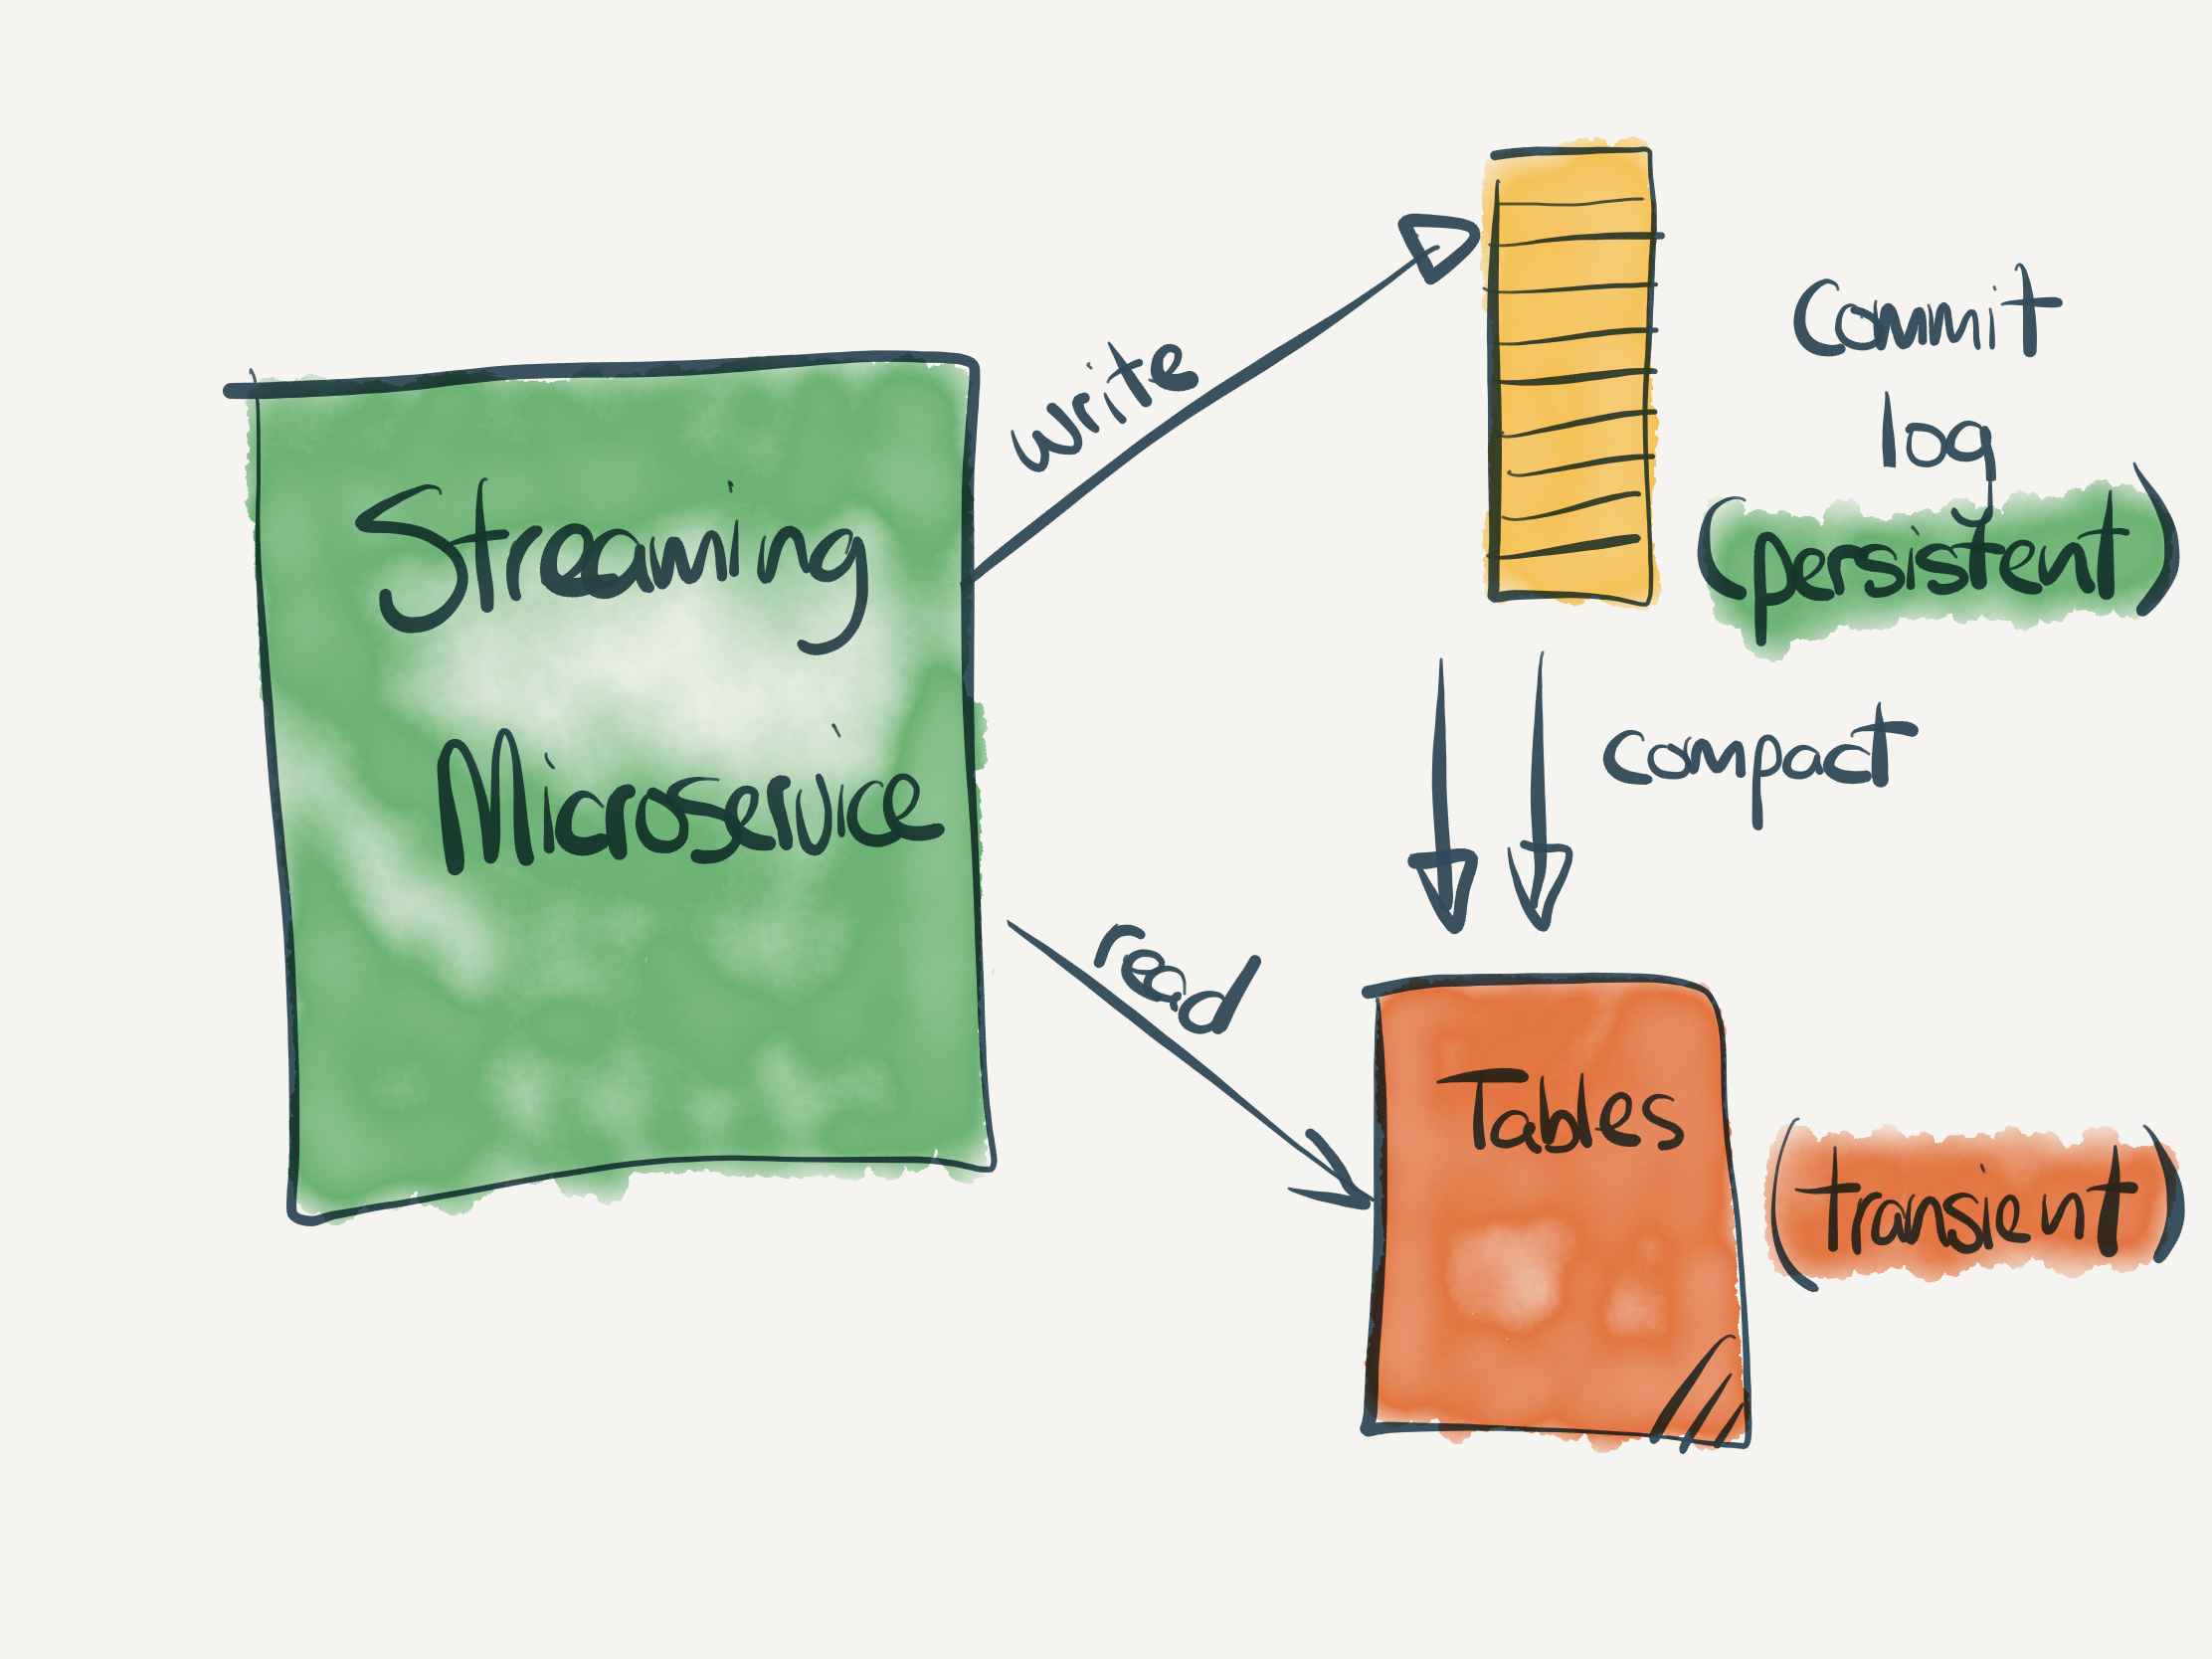 Streaming
Microservice
write
Commit
log
(persistent)
compact
read
Tables
(transient)